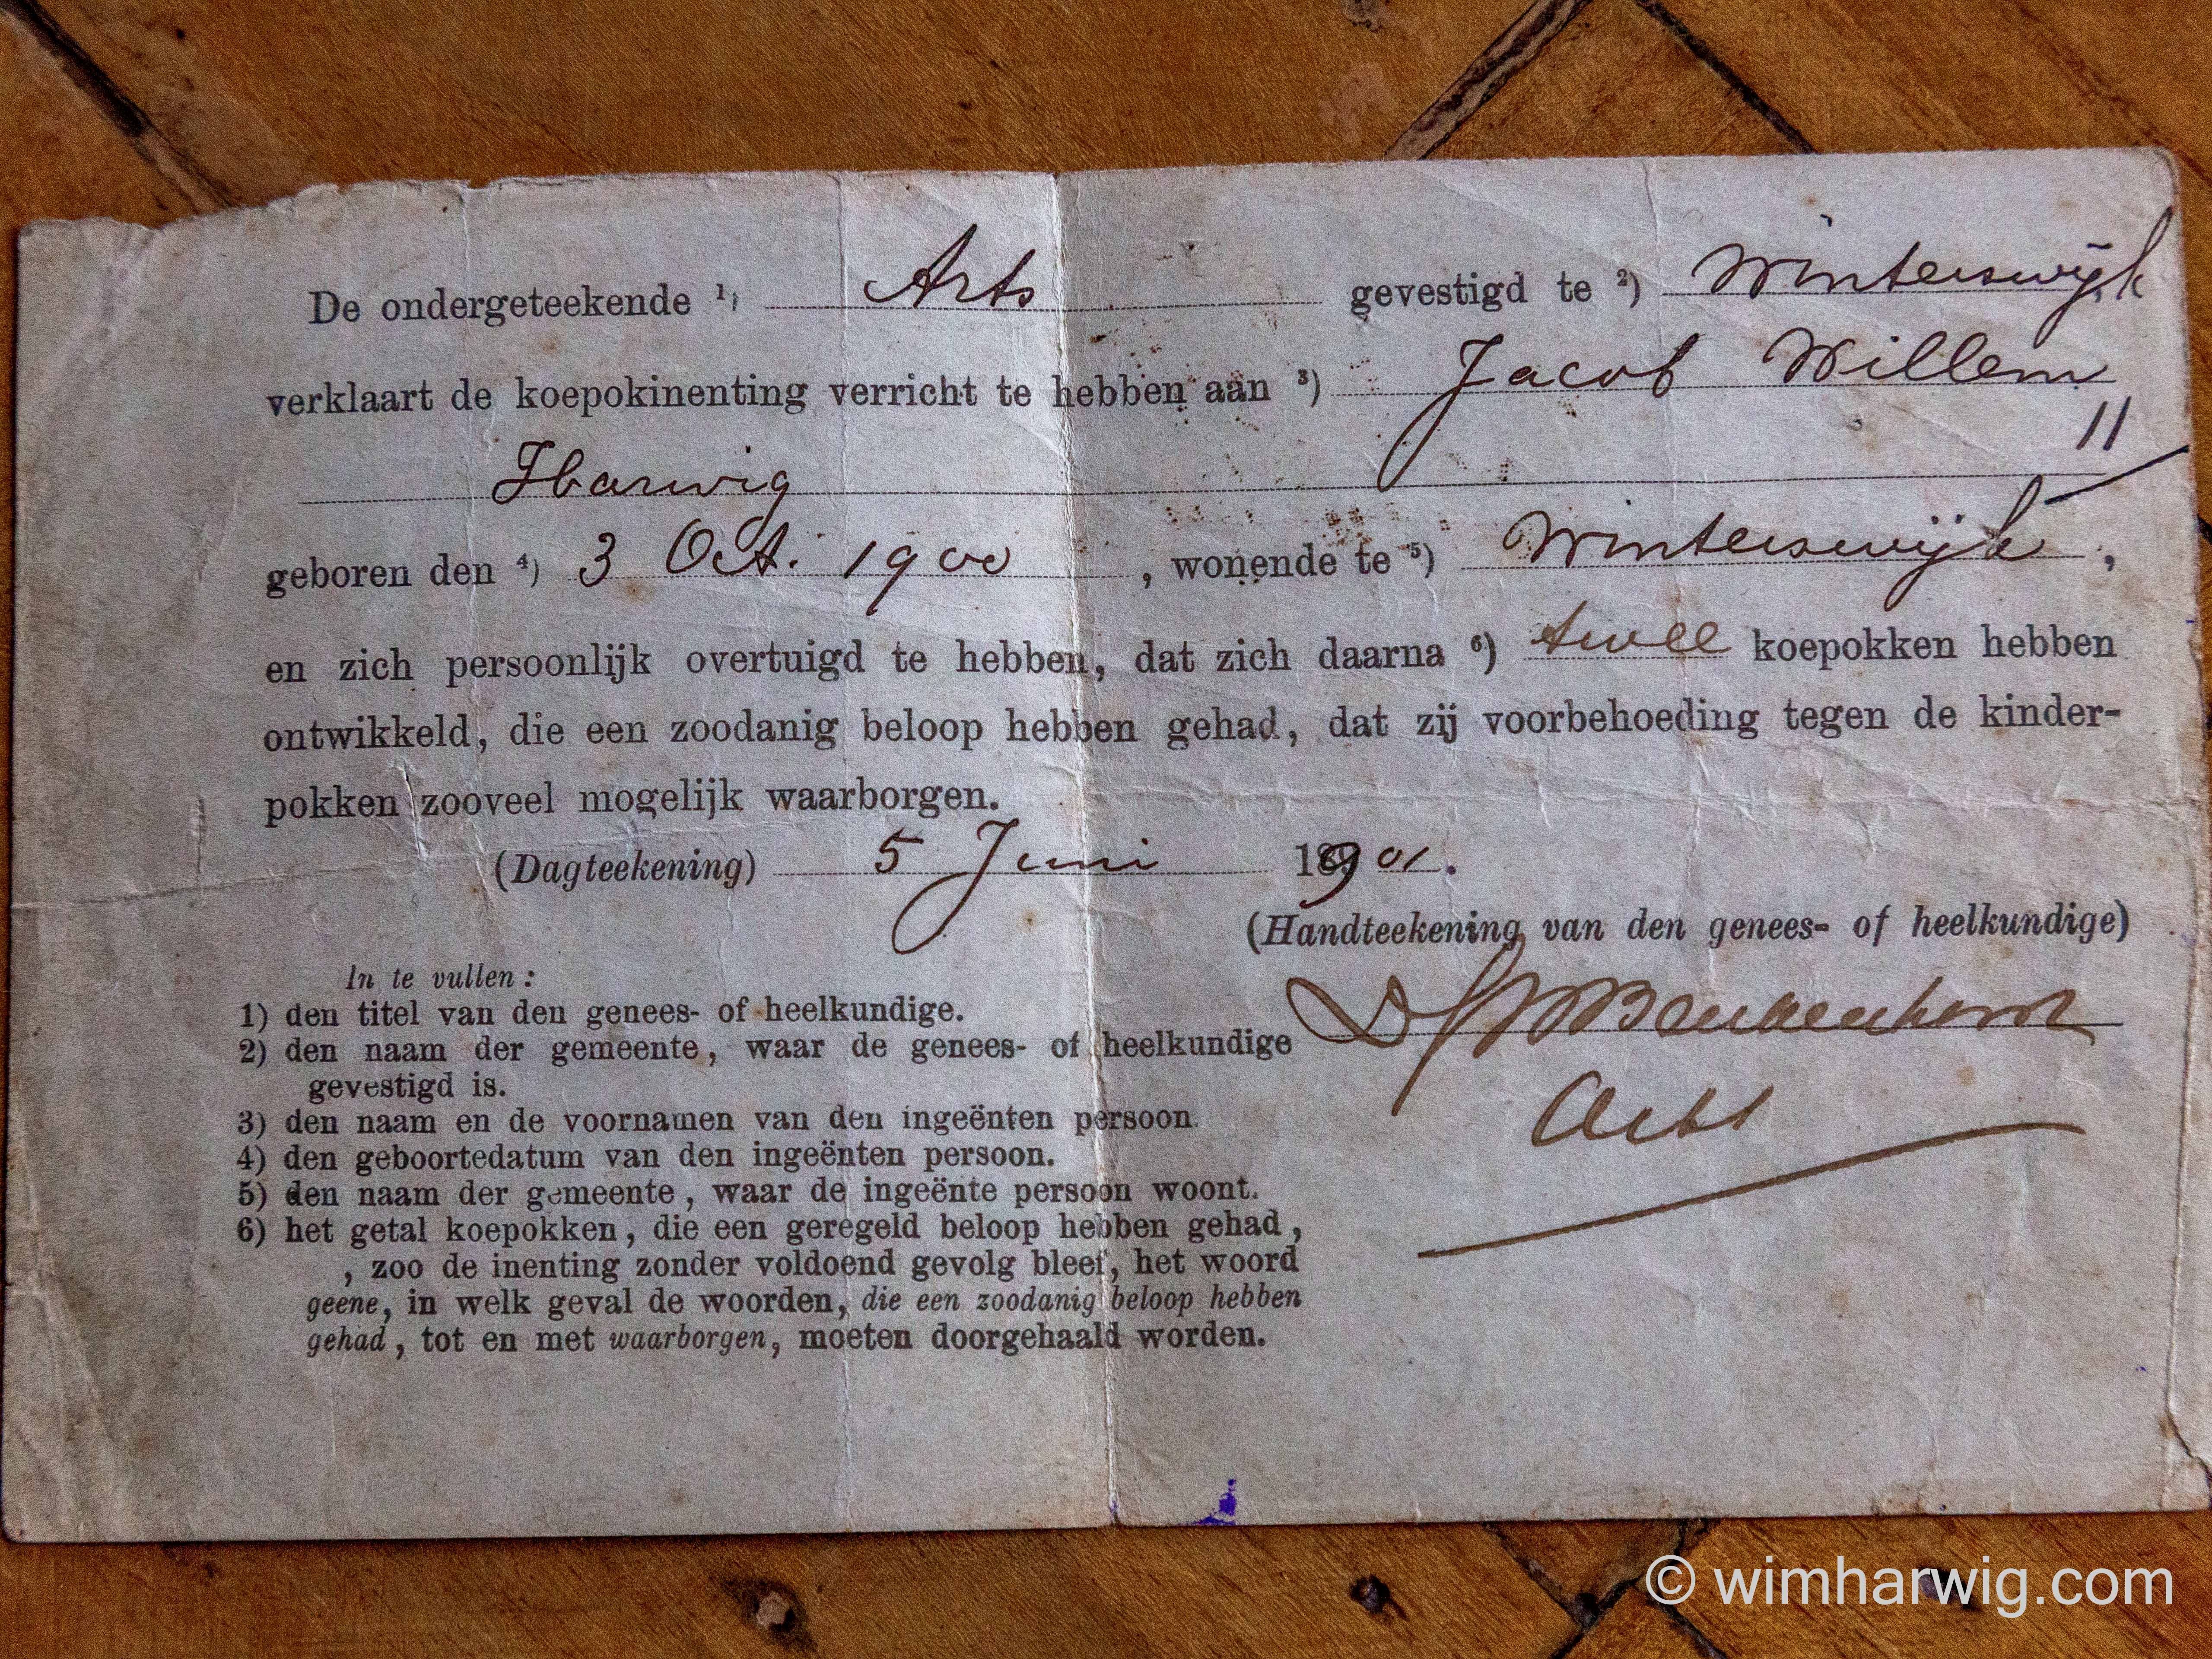 De ondergeteekende 1) Arts gevestigd te 2) Winterswijk
verklaart de koepokinenting verricht te hebben aan 3) Jacob Willem
Harwig 11
geboren den 4) 3 Oct. 1900, wonende te 5) Winterswijk,
en zich persoonlijk overtuigd te hebben, dat zich daarna 6) twee koepokken hebben
ontwikkeld, die een zoodanig beloop hebben gehad, dat zij voorbehoeding tegen de kinder-
pokken zooveel mogelijk waarborgen.
(Dagteekening) 5 Juni 1901.
(Handteekening van den genees- of heelkundige)
In te vullen:
1) den titel van den genees- of heelkundige.
2) den naam der gemeente, waar de genees- of heelkundige
gevestigd is.
3) den naam en de voornamen van den ingeënten persoon.
4) den geboortedatum van den ingeënten persoon.
5) den naam der gemeente, waar de ingeënte persoon woont.
6) het getal koepokken, die een geregeld beloop hebben gehad,
, zoo de inenting zonder voldoend gevolg bleef, het woord
geene, in welk geval de woorden, die een zoodanig beloop hebben
gehad, tot en met waarborgen, moeten doorgehaald worden.
Arts
© wimharwig.com